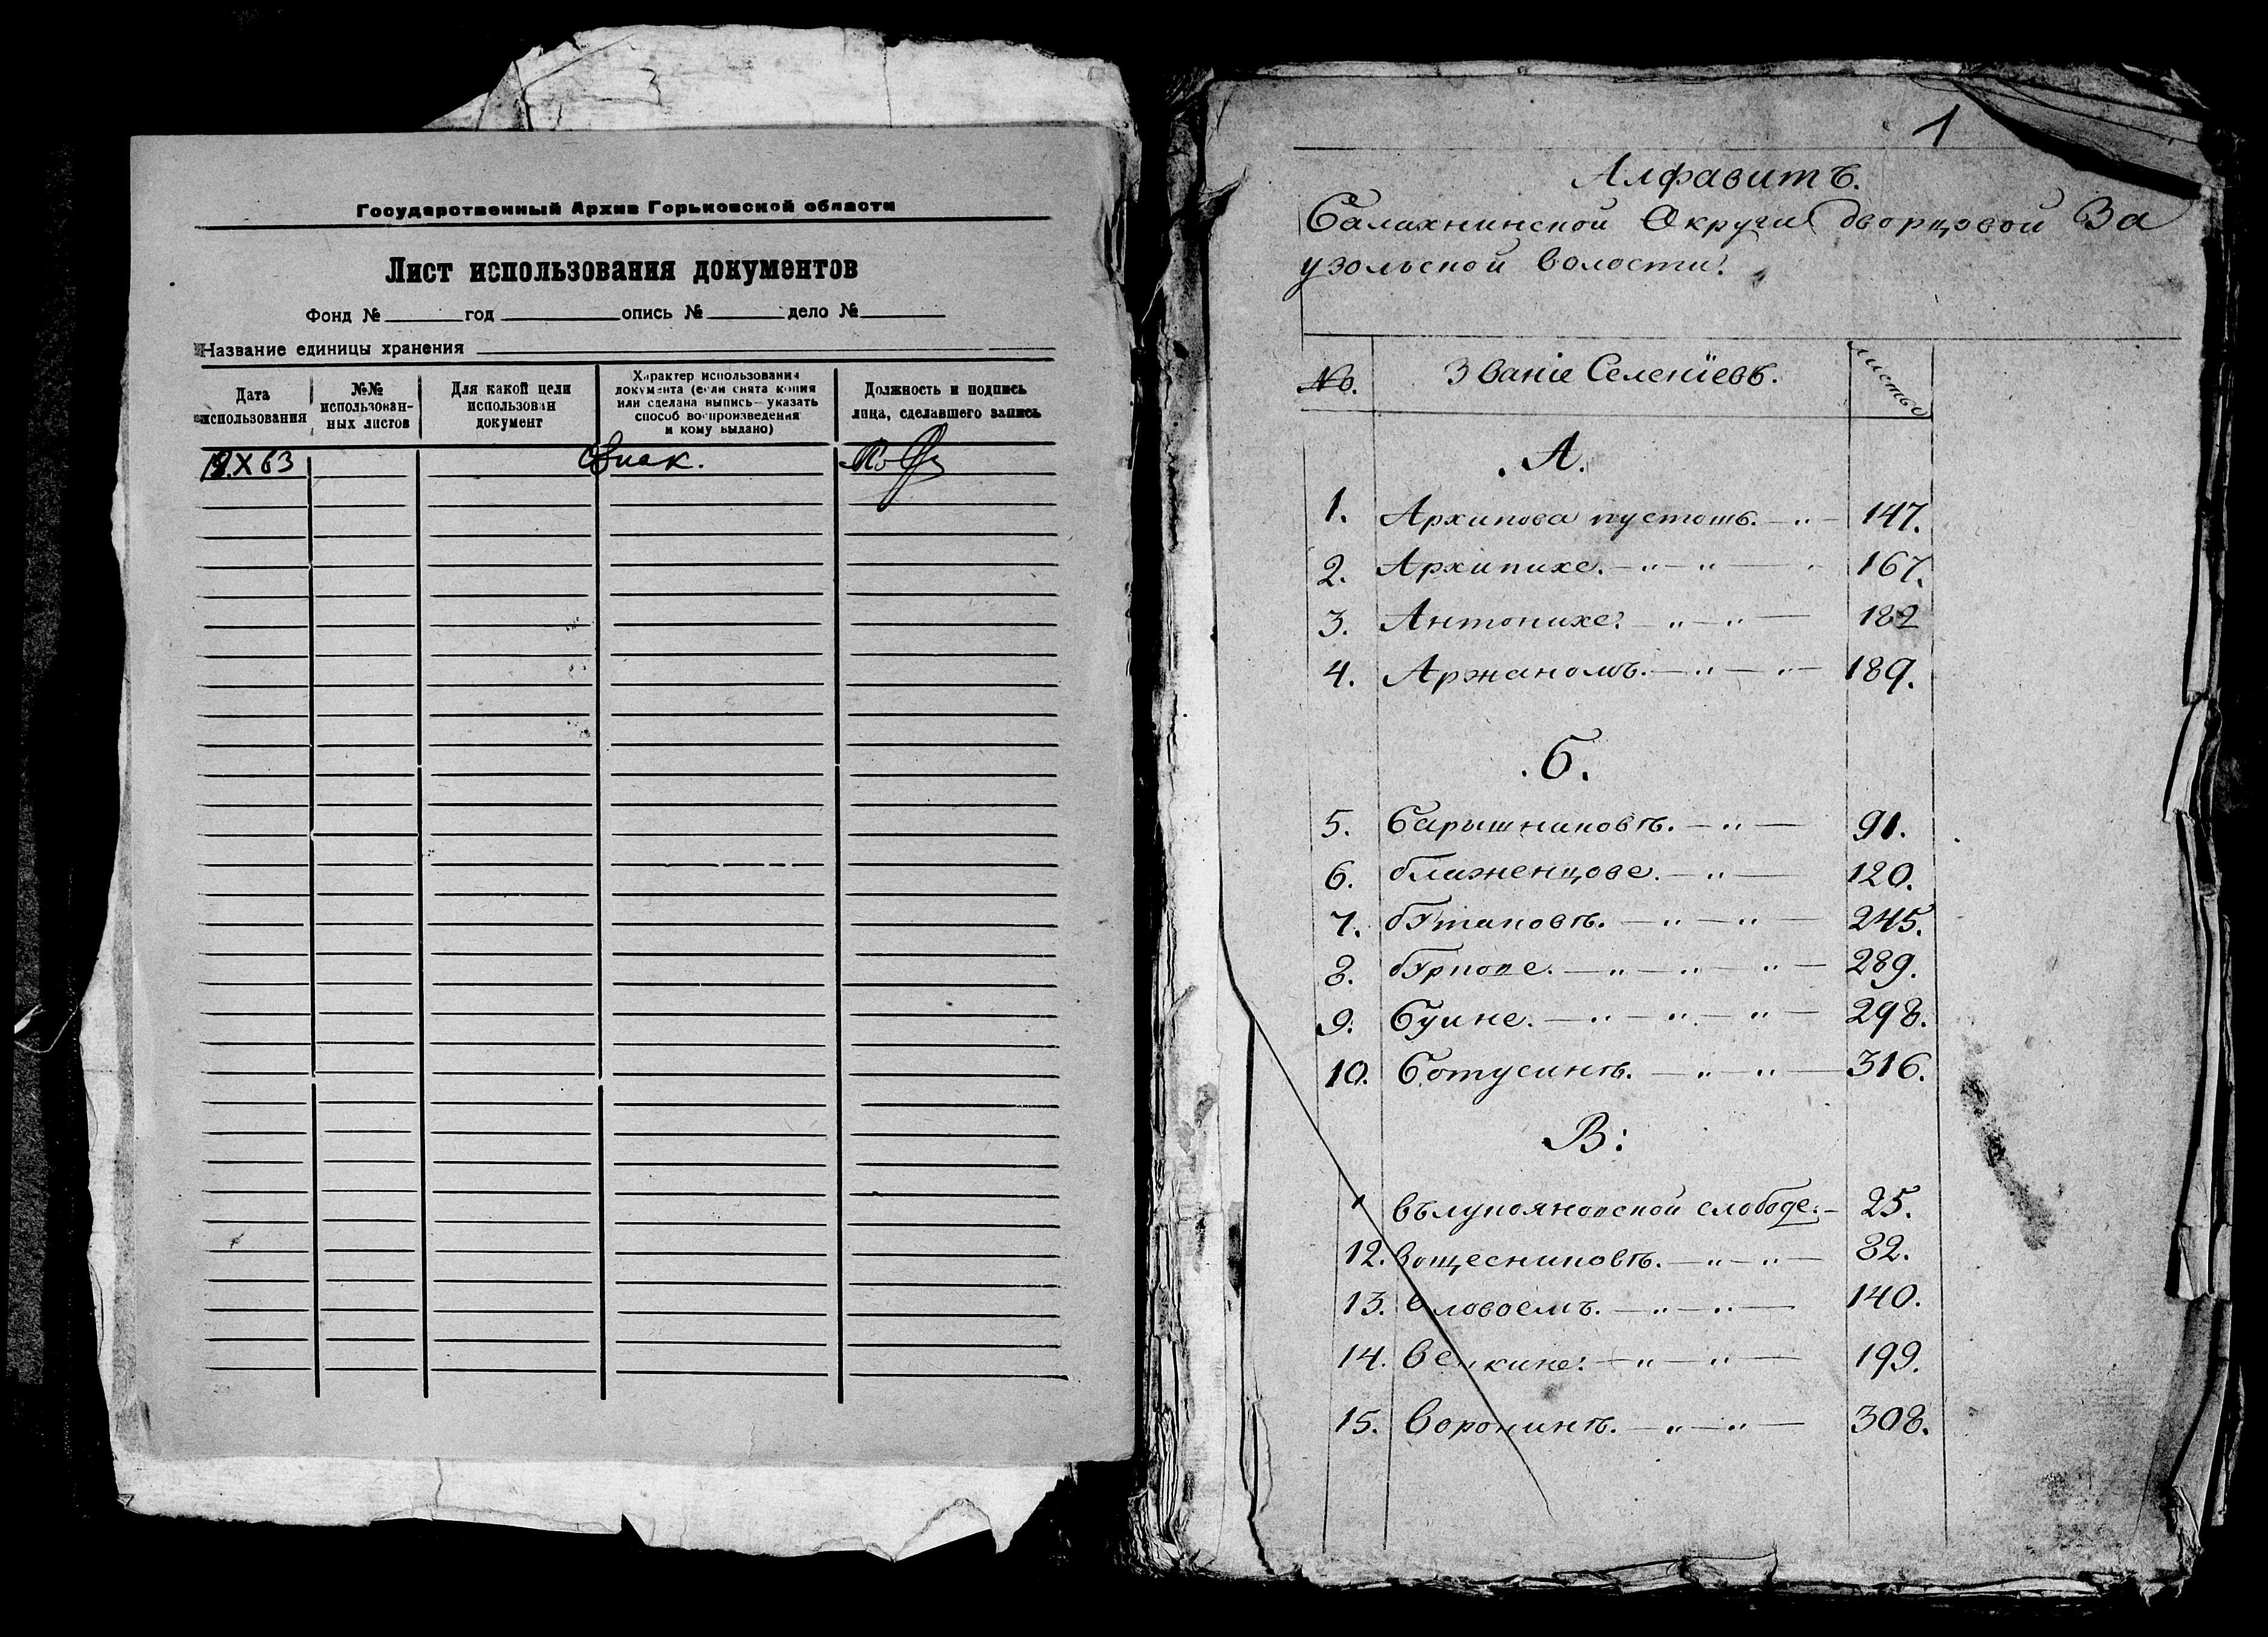 3
Государственный Архив Горьковской области
Лист использования документов
Фонд № год опись № дело №
Название единицы хранения
Дата использования
№№ использован-
ных листов
Для какой цели
использован
документ
Характер использования
документа (если снята копия
или сделана выпись—указать
способ воспроизведения
и кому выдано)
Должность и подпись
лица, сделавшего запись
19.X 63
1
Алфавитъ.
Балахнинской Округи дворцовой За
узольской волости.
№. Званіе Селеніевъ. листы
А.
1. Архипова пустошь. 147.
2. Архипихе. 167.
3. Антонихе. 182
4. Аржаномъ. 189.
Б.
5. Барышниковѣ. 91.
6. ближенцове. 120.
7. 245.
8. 289.
9. Буине. 298.
10. Ботусинѣ. 316.
В:
вълукояновской слободе. 25.
12. вощесниковѣ. 82.
13. 140.
14. 199.
15. Воронинѣ. 308.